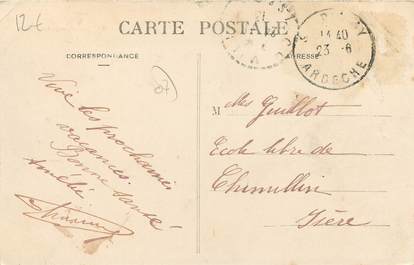 12€
CARTE POSTALE
CORRESPONDANCE
ADRESSE
13 40
23 - 6
ARDECHE
07
Vive les prochaines
vacances.
Bonne Santé
Amitiés
M
elles Guillot
Ecole libre de
Chimillin
Isère